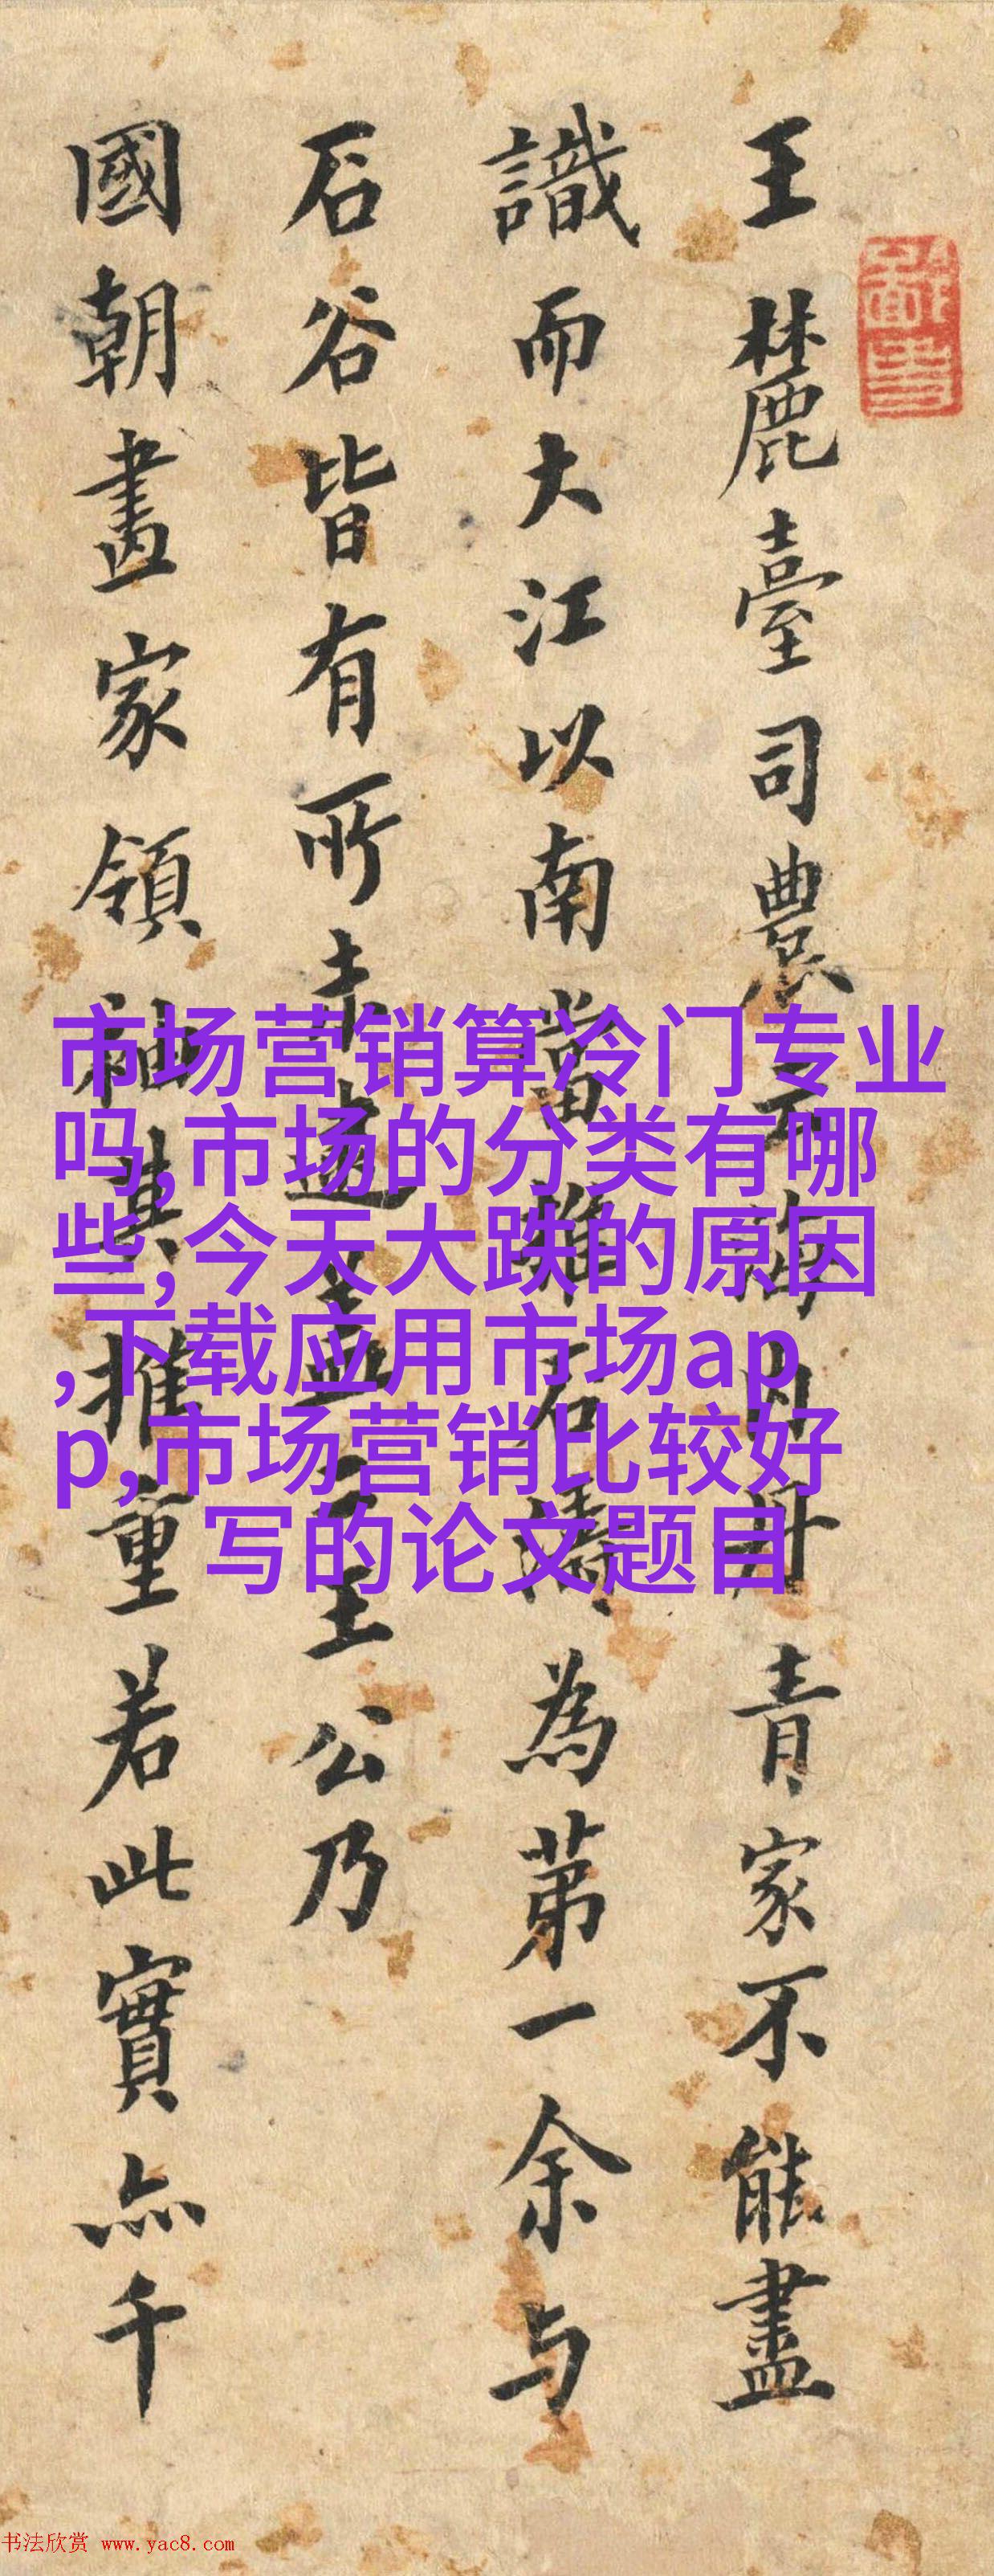 王麓臺司農云海内丹青家不能盡
識而大江以南當推石濤為第一余与
石谷皆有所未逮盖二王公乃
國朝畫家領袖其推重若此實亦千
市场营销算冷门专业
吗,市场的分类有哪
些,今天大跌的原因
,下载应用市场ap
p,市场营销比较好
写的论文题目
书法欣赏 www.yac8.com